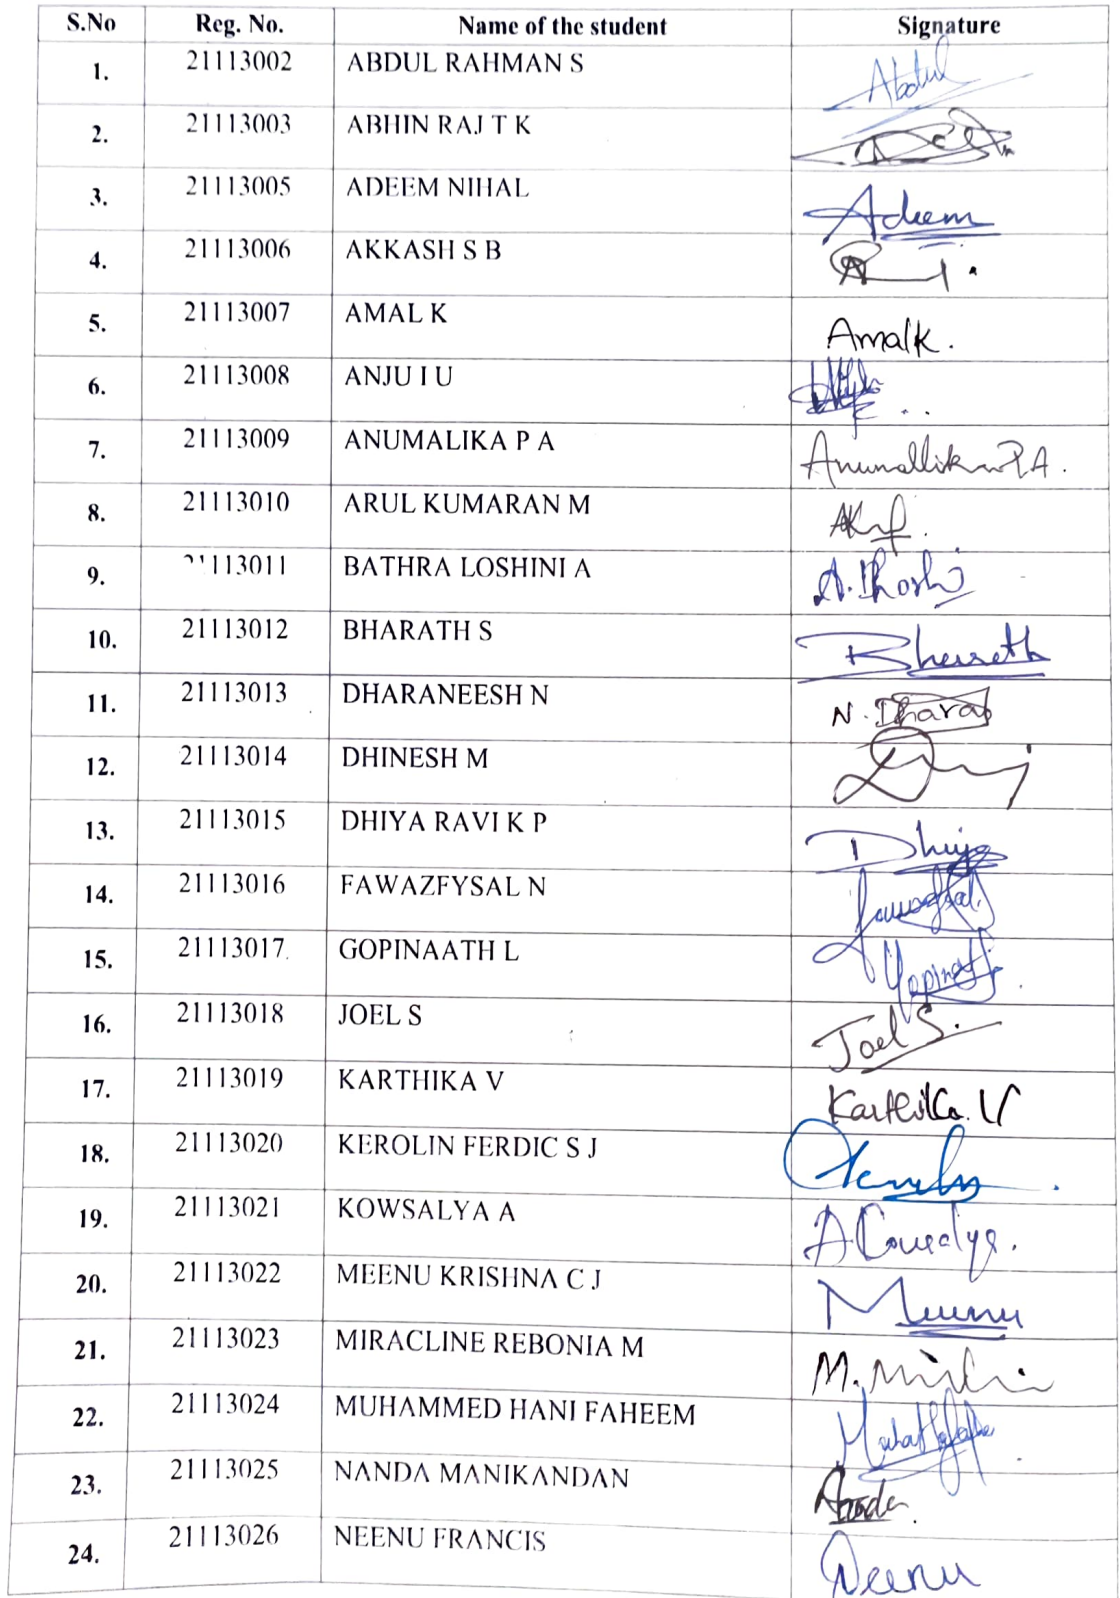 S.No Reg. No. Name of the student Signature
1. 21113002 ABDUL RAHMAN S Abdul
2. 21113003 ABHIN RAJ T K
3. 21113005 ADEEM NIHAL Adeem
4. 21113006 AKKASH S B
5. 21113007 AMAL K Amalk.
6. 21113008 ANJU I U
7. 21113009 ANUMALIKA P A Anumallika P.A.
8. 21113010 ARUL KUMARAN M
9. 113011 BATHRA LOSHINI A
10. 21113012 BHARATH S Bharath
11. 21113013 DHARANEESH N N. Dharan
12. 21113014 DHINESH M
13. 21113015 DHIYA RAVI K P Dhiya
14. 21113016 FAWAZFYSAL N
15. 21113017 GOPINAATH L Gopinath
16. 21113018 JOEL S Joel S.
17. 21113019 KARTHIKA V Karthika. V
18. 21113020 KEROLIN FERDIC S J
19. 21113021 KOWSALYA A A.Cowsalya.
20. 21113022 MEENU KRISHNA C J Meenu
21. 21113023 MIRACLINE REBONIA M
22. 21113024 MUHAMMED HANI FAHEEM
23. 21113025 NANDA MANIKANDAN
24. 21113026 NEENU FRANCIS Neenu